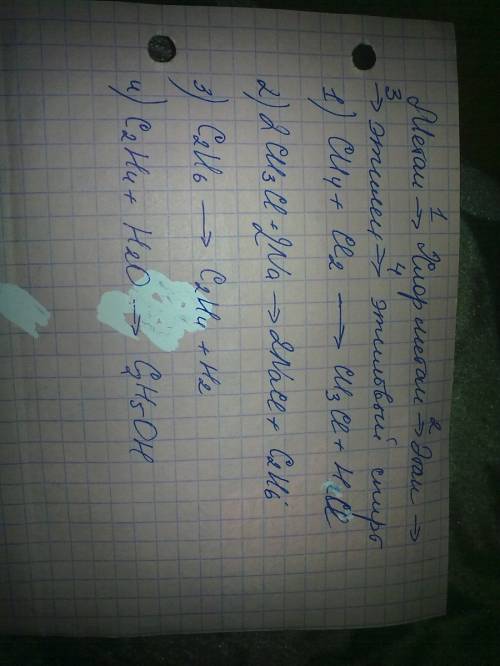 Метан 1→ Хлорметан 2→ Этан →
3→ этилен 4→ этиловый спирт
1) CH4 + Cl2 → CH3Cl + HCl
2) 2CH3Cl + 2Na → 2NaCl + C2H6
3) C2H6 → C2H4 + H2
4) C2H4 + H2O → C2H5OH